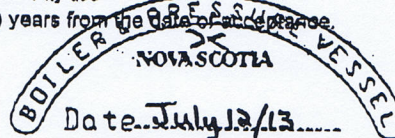 ) years from the date of acceptance.
BOILER & PRESSURE VESSEL
NOVA SCOTIA
Date..July 12/13......